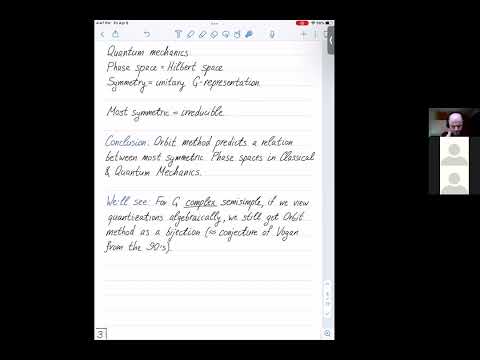 Quantum mechanics
Phase space = Hilbert space
Symmetry = unitary G-representation
Most symmetric = irreducible.
Conclusion: Orbit method predicts a relation
between most symmetric Phase spaces in Classical
& Quantum Mechanics.
We'll see: For G complex semisimple, if we view
quantizations algebraically, we still get Orbit
method as a bijection (≈ conjecture of Vogan
from the 90's).
3